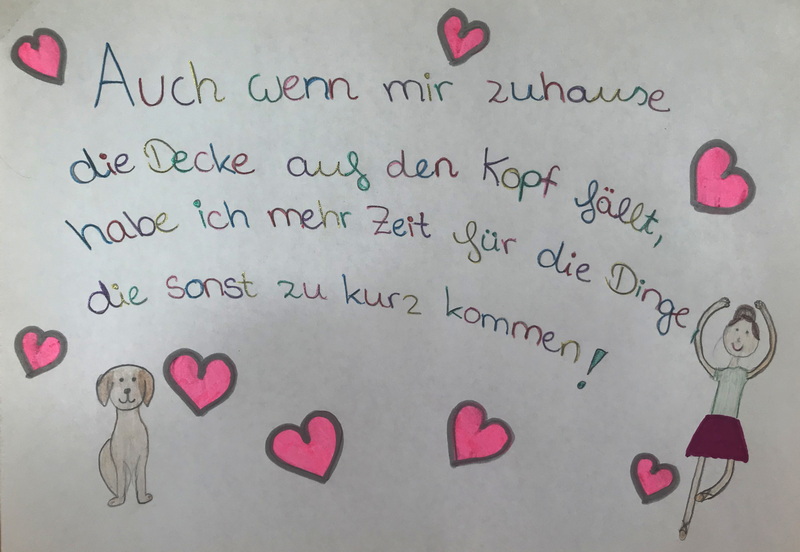 Auch wenn mir zuhause
die Decke auf den Kopf fällt,
habe ich mehr Zeit für die Dinge,
die sonst zu kurz kommen!